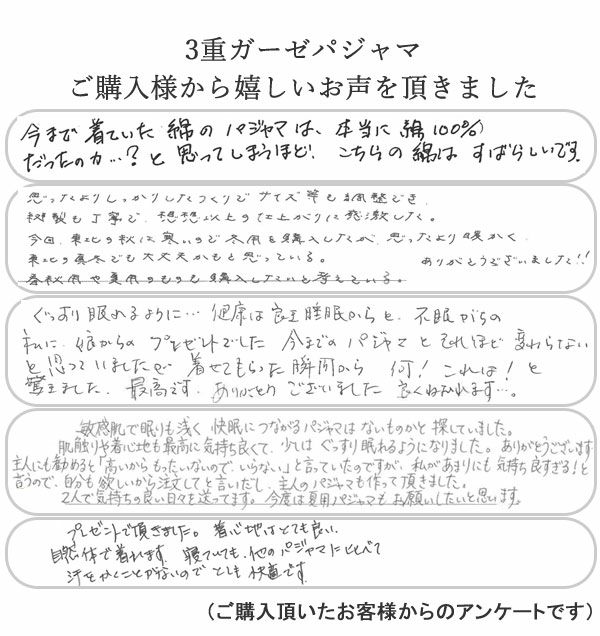 3重ガーゼパジャマ
ご購入様から嬉しいお声を頂きました
今まで着ていた綿のパジャマは、本当に綿100%
だったのカ…?と思ってしまうほど、こちらの綿はすばらしいです。
思ったよりしっかりしたつくりでサイズ等も調整でき、
縫製も丁寧で、想想以上の仕上がりに感激した。
今回、東北の秋は寒いので冬用を購入したが、思ったより暖かく、
東北の真冬でも大丈夫かもと思っている。 ありがとうございました!!
春秋用や夏用のものも購入したいと考えている。
ぐっすり眠れるように… 健康は良い睡眠からと、不眠がちの
私に、娘からのプレゼントでした 今までのパジャマとそれほど変わらない
と思っていましたが 着せてもらった瞬間から 何!これは!と
驚きました、最高です、ありがとうございました 良くねむれます…。
敏感肌で眠りも浅く 快眠につながるパジャマはないものかと探していました。
肌触りや着心地も最高に気持ち良くて、少しはぐっすり眠れるようになりました。ありがとうございます
主人にも勧めると「高いからもったいないので、いらない」と言っていたのですが、私があまりにも気持ち良すぎる!と
言うので、自分も欲しいから注文してと言いだし、主人のパジャマも作って頂きました。
2人で気持ちの良い日々を送ってます。今度は夏用パジャマもお願いしたいと思います。
プレゼントで頂きました。着心地はとても良い、
自然体で着れます。寝ていても、他のパジャマにくらべて
汗をかくことがないのでとても快適です。
(ご購入頂いたお客様からのアンケートです)